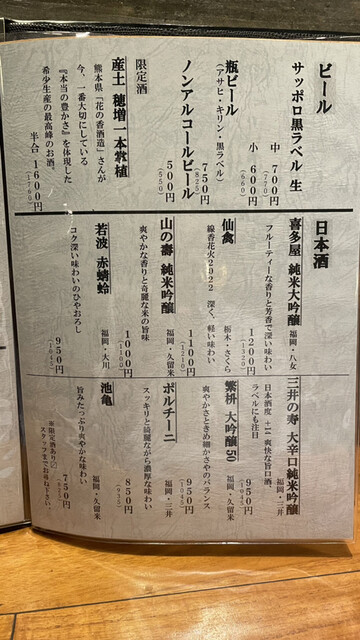 ビール
サッポロ黒ラベル 生
中 700円
(770)
小 600円
(660)
瓶ビール
(アサヒ・キリン・黒ラベル)
750円
(825)
ノンアルコールビール
500円
(550)
限定酒
産土 穂増 一本𠀋植
熊本県「花の香酒造」さんが
今、一番大切にしている
『本当の豊かさ』を体現した
希少生産の最高峰のお酒。
半合 1600円
(1760)
日本酒
喜多屋 純米大吟醸
福岡・八女
フルーティーな香りと芳香で深い味わい
1200円
(1320)
仙禽
栃木・さくら
線香花火2022 深く、軽い味わい
1100円
(1210)
山の壽 純米吟醸
福岡・久留米
爽やかな香りと奇麗な米の旨味
1000円
(1100)
若波 赤蜻蛉
福岡・大川
コク深い味わいのひやおろし
950円
(1045)
三井の寿 大辛口純米吟醸
福岡・三井
日本酒度 +14 爽快な旨口酒
ラベルにも注目
950円
(1045)
繁桝 大吟醸50
福岡・八女
爽やかさときめ細かさやのバランス
950円
(1045)
ポルチーニ
福岡・三井
スッキリと綺麗ながら濃厚な味わい
850円
(935)
池亀
福岡・久留米
旨みたっぷり爽やかな味わい
750円
(825)
※限定酒あり〼
スタッフまでお尋ね下さい。